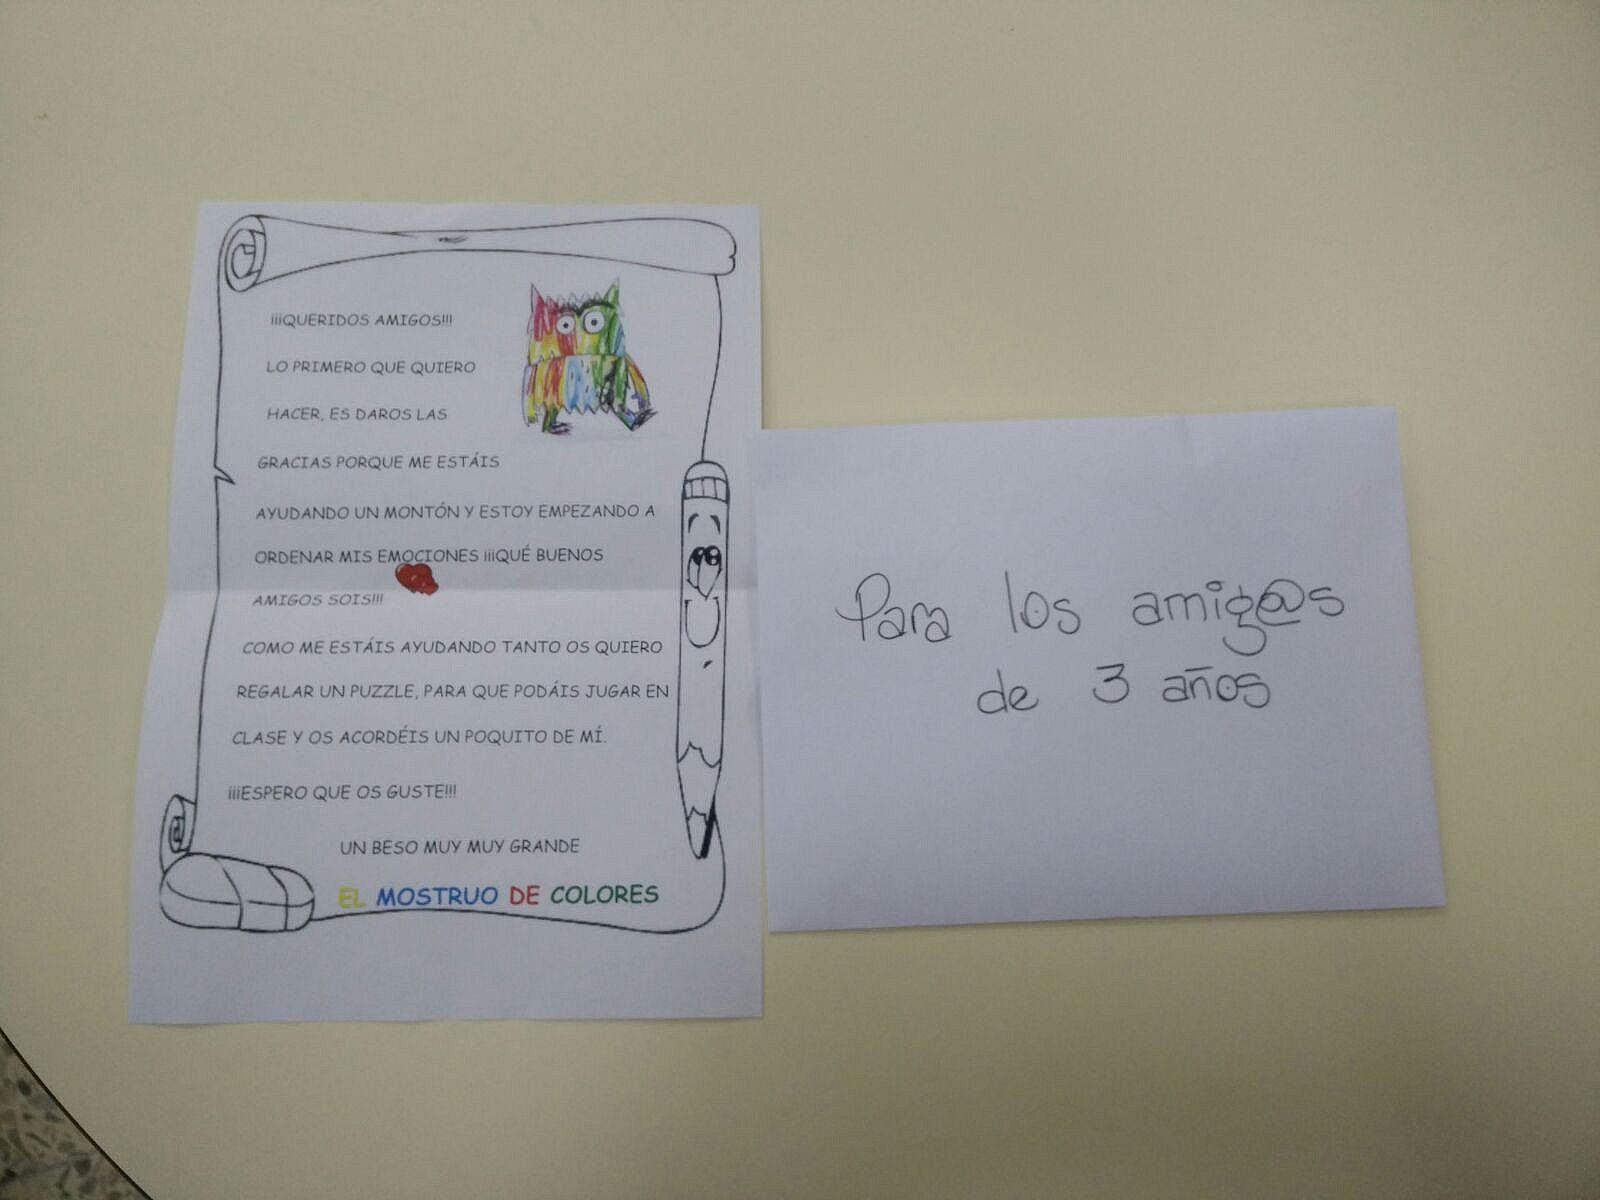 ¡¡¡QUERIDOS AMIGOS!!!
LO PRIMERO QUE QUIERO
HACER, ES DAROS LAS
GRACIAS PORQUE ME ESTÁIS
AYUDANDO UN MONTÓN Y ESTOY EMPEZANDO A
ORDENAR MIS EMOCIONES ¡¡¡QUÉ BUENOS
AMIGOS SOIS!!!
COMO ME ESTÁIS AYUDANDO TANTO OS QUIERO
REGALAR UN PUZZLE, PARA QUE PODÁIS JUGAR EN
CLASE Y OS ACORDÉIS UN POQUITO DE MÍ.
¡¡¡ESPERO QUE OS GUSTE!!!
UN BESO MUY MUY GRANDE
EL MOSTRUO DE COLORES
Para los amig@s
de 3 años